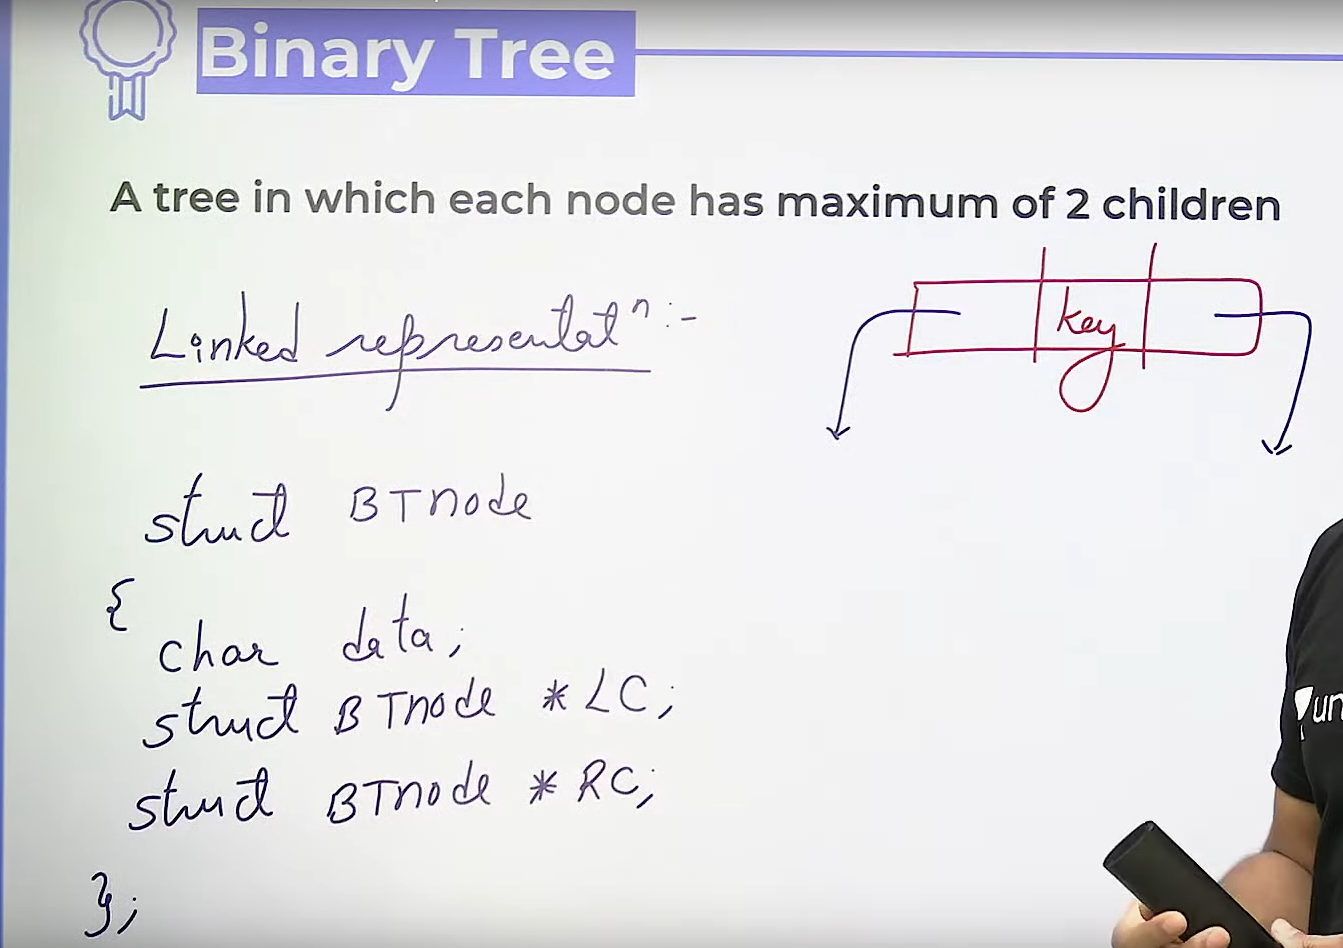 Binary Tree
A tree in which each node has maximum of 2 children
Linked representatⁿ :-
key
struct BTnode
{
char data;
struct BTnode *LC;
struct BTnode *RC;
};
un